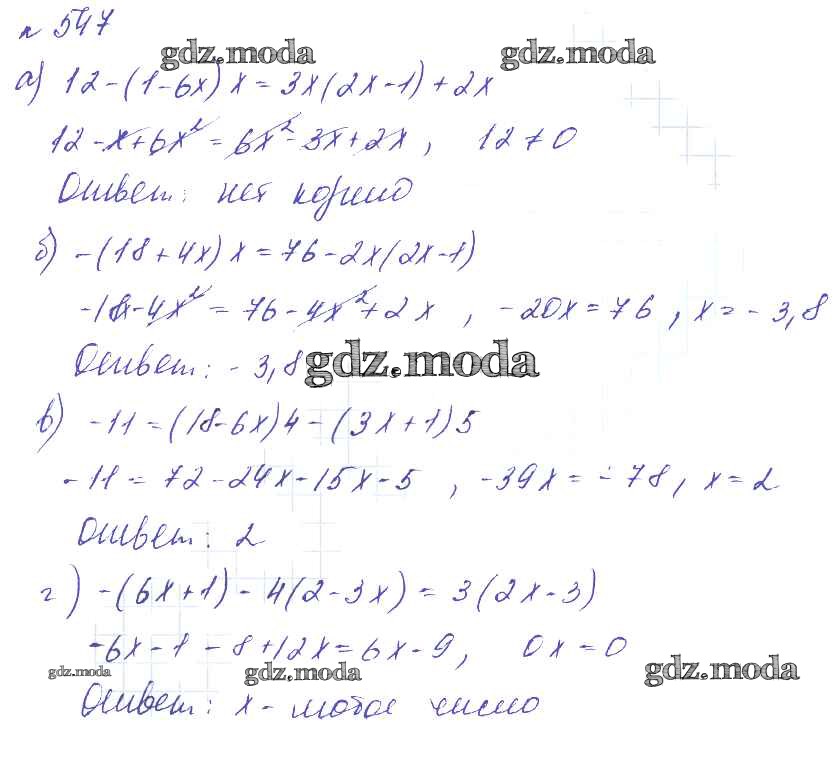 № 547
gdz.moda gdz.moda
а) 12-(1-6x)x=3x(2x-1)+2x
12-x+6x²=6x²-3x+2x, 12≠0
Ответ: нет корней
б) -(18+4x)x=76-2x(2x-1)
-18x-4x²=76-4x²+2x, -20x=76, x=-3,8
Ответ: -3,8
gdz.moda
в) -11=(18-6x)4-(3x+1)5
-11=72-24x-15x-5, -39x=-78, x=2
Ответ: 2
г) -(6x+1)-4(2-3x)=3(2x-3)
-6x-1-8+12x=6x-9, 0x=0
gdz.moda gdz.moda gdz.moda
Ответ: x-любое число